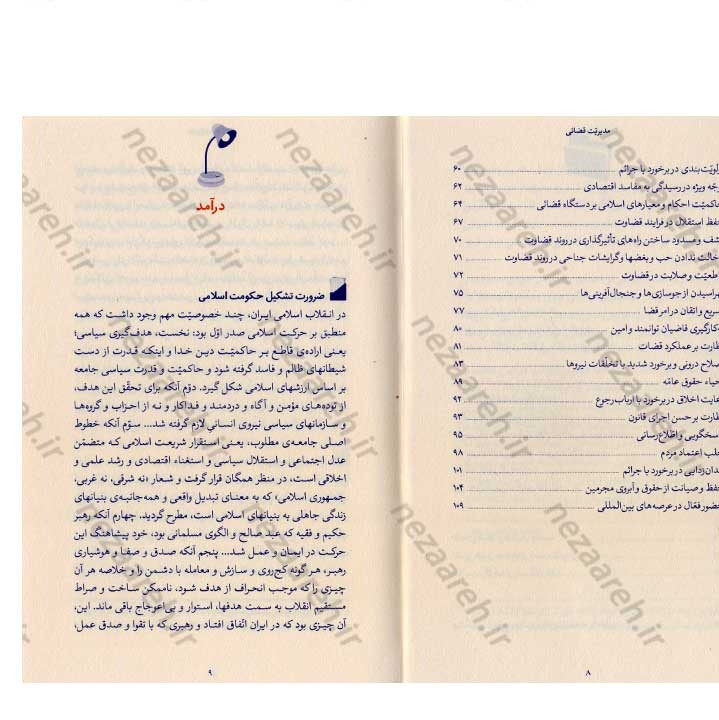 مدیریّت قضائی
لویّت‌بندی در برخورد با جرائم ۶۰
جّه ویژه در رسیدگی به مفاسد اقتصادی ۶۲
حاکمیّت احکام و معیارهای اسلامی بر دستگاه قضائی ۶۴
حفظ استقلال در فرایند قضاوت ۶۷
شف و مسدود ساختن راه‌های تأثیرگذاری در روند قضاوت ۷۰
خالت ندادن حب و بغضها و گرایشات جناحی در روند قضاوت ۷۱
اطعیّت و صلابت در قضاوت ۷۲
هراسیدن از جوسازی‌ها و جنجال‌آفرینی‌ها ۷۵
سریع و اتقان در امر قضا ۷۷
‌کارگیری قاضیان توانمند و امین ۸۰
ظارت بر عملکرد قضات ۸۱
صلاح درونی و برخورد شدید با تخلّفات نیروها ۸۳
حیاء حقوق عامّه ۸۹
عایت اخلاق در برخورد با ارباب رجوع ۹۲
ظارت بر حسن اجرای قانون ۹۳
اسخگویی و اطّلاع‌رسانی ۹۵
جلب اعتماد مردم ۹۸
ندان‌زدایی در برخورد با جرائم ۱۰۱
حفظ و صیانت از حقوق و آبروی مجرمین ۱۰۴
حضور فعّال در عرصه‌های بین‌المللی ۱۰۹
۸
درآمد
ضرورت تشکیل حکومت اسلامی
در انقلاب اسلامی ایران، چند خصوصیّت مهم وجود داشت که همه
منطبق بر حرکت اسلامی صدر اوّل بود: نخست، هدف‌گیری سیاسی؛
یعنی اراده‌ی قاطع بر حاکمیّت دین خدا و اینکه قدرت از دست
شیطانهای ظالم و فاسد گرفته شود و حاکمیّت و قدرت سیاسی جامعه
بر اساس ارزشهای اسلامی شکل گیرد. دوّم آنکه برای تحقّق این هدف،
از توده‌های مؤمن و آگاه و دردمند و فداکار و نه از احزاب و گروه‌ها
و سازمانهای سیاسی نیروی انسانی لازم گرفته شد... سوّم آنکه خطوط
اصلی جامعه‌ی مطلوب، یعنی استقرار شریعت اسلامی که متضمّن
عدل اجتماعی و استقلال سیاسی و استغناء اقتصادی و رشد علمی و
اخلاقی است، در منظر همگان قرار گرفت و شعار «نه شرقی، نه غربی،
جمهوری اسلامی» که به معنای تبدیل واقعی و همه‌جانبه‌ی بنیانهای
زندگی جاهلی به بنیانهای اسلامی است، مطرح گردید. چهارم آنکه رهبر
حکیم و فقیه که عبد صالح و الگوی مسلمانی بود، خود پیشاهنگ این
حرکت در ایمان و عمل شد... پنجم آنکه صدق و صفا و هوشیاری
رهبر، هر گونه کج‌روی و سازش و معامله با دشمن را و خلاصه هر آن
چیزی را که موجب انحراف از هدف شود، ناممکن ساخت و صراط
مستقیم انقلاب به سمت هدفها، استوار و بی‌اعوجاج باقی ماند. این،
آن چیزی بود که در ایران اتّفاق افتاد و رهبری که با تقوا و صدق عمل،
۹
nezaareh.ir
nezaareh.ir
nezaareh.ir
nezaareh.ir
nezaareh.ir
nezaareh.ir
nezaareh.ir
nezaareh.ir
nezaareh.ir
nezaareh.ir